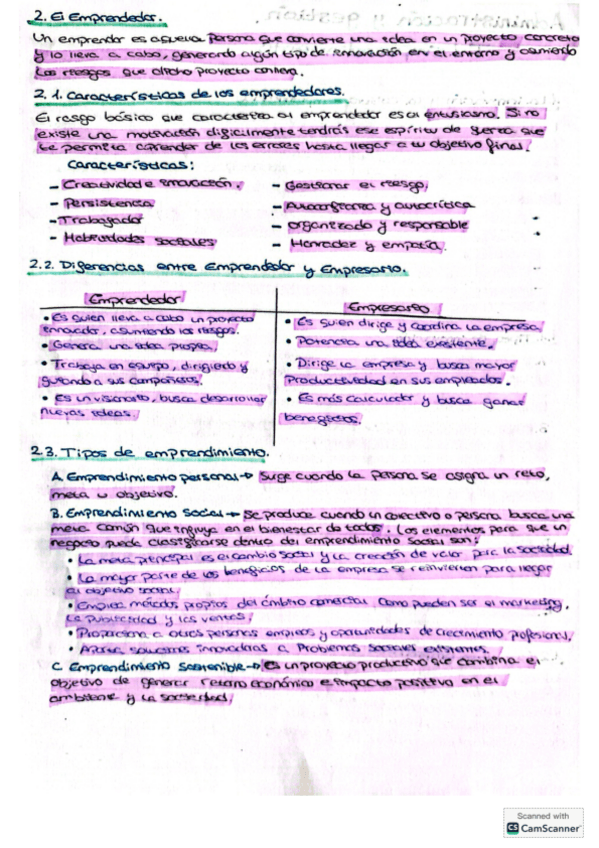 2. El Emprendedor.
Un emprender es aquella persona que convierte una idea en un proyecto concreto
y lo lleva a cabo, generando algún tipo de innovación en el entorno y asumiendo
los riesgos que dicho proyecto conlleva.
2.1. Características de los emprendedores.
El rasgo básico que caracteriza al emprendedor es el entusiasmo. Si no
existe una motivación dificilmente tendrás ese espíritu de fuerza que
te permita aprender de los errores hasta llegar a tu objetivo final.
Características:
- Creatividad e innovación.
- Persistencia
- Trabajador
- Habilidades sociales
- Gestionar el riesgo,
- Autoconfianza y autocrítica
- Organizado y responsable
- Honradez y empatía.
2.2. Diferencias entre Emprendedor y Empresario.
Emprendedor
• Es quien lleva a cabo un proyecto
innovador, asumiendo los riesgos.
• Genera una idea propia.
• Trabaja en equipo, dirigiendo y
guiando a sus compañeros.
• Es un visionario, busca desarrollar
nuevas ideas.
Empresario
• Es quien dirige y coordina la empresa.
• Potencia una idea existente.
• Dirige la empresa y busca mayor
productividad en sus empleados.
• Es más calculador y busca ganar
beneficios.
2.3. Tipos de emprendimiento.
A. Emprendimiento personal → Surge cuando la persona se asigna un reto,
meta u objetivo.
B. Emprendimiento Social → Se produce cuando un colectivo o persona busca una
meta común que influya en el bienestar de todos. Los elementos para que un
negocio pueda clasificarse dentro del emprendimiento social son:
• La meta principal es el cambio social y la creación de valor para la sociedad.
• La mayor parte de los beneficios de la empresa se reinvierten para llegar
al objetivo social.
• Emplea métodos propios del ámbito comercial como pueden ser el marketing,
la publicidad y las ventas.
• Proporciona a otras personas empleos y oportunidades de crecimiento profesional.
• Aporta soluciones innovadoras a Problemas sociales existentes.
C. Emprendimiento sostenible → Es un proyecto productivo que combina el
objetivo de generar retorno económico e impacto positivo en el
ambiente y la sociedad.
Scanned with
CS CamScanner